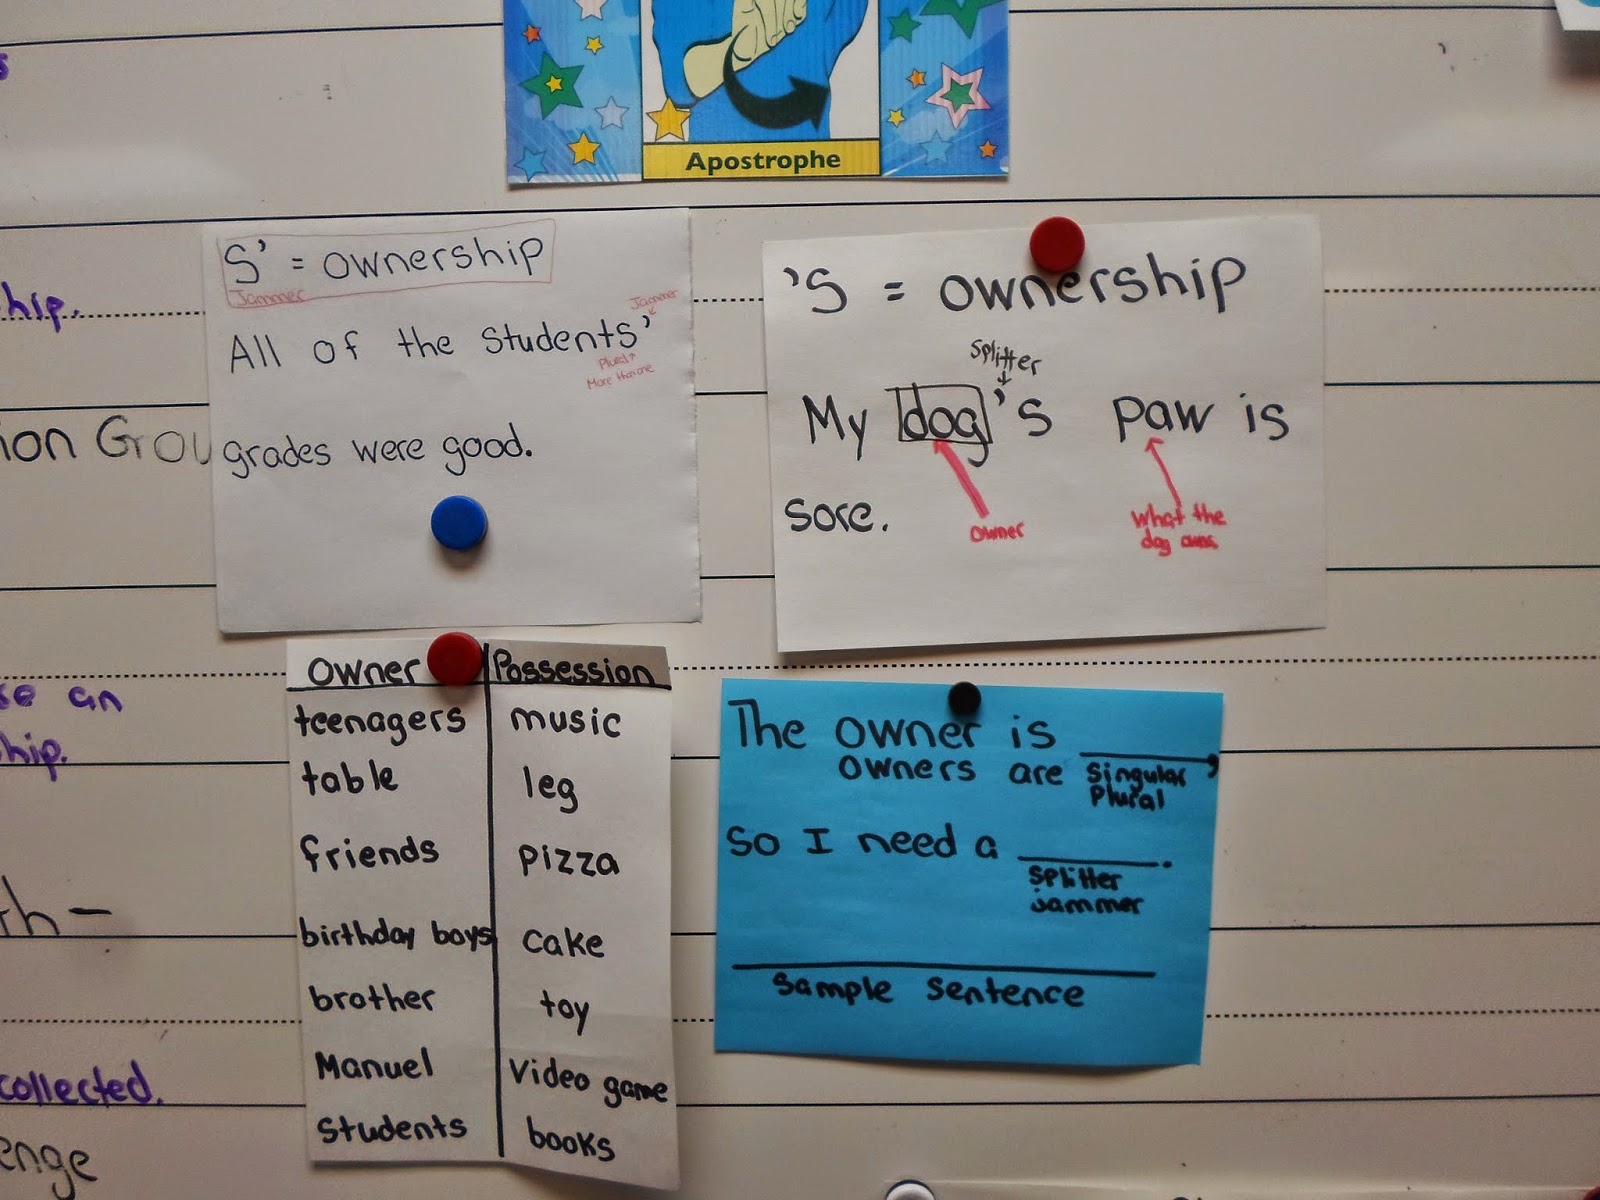 Apostrophe
S' = ownership
Jammer
Jammer
All of the students'
Plural
More than one
grades were good.
's = ownership
splitter
My dog's paw is
sore.
owner
what the
dog owns
Owner Possession
teenagers music
table leg
friends pizza
birthday boys cake
brother toy
Manuel Video game
Students books
The owner is ,
owners are singular
Plural
so I need a .
splitter
jammer
Sample Sentence
hip.
ion Grou
se an
ship.
th-
collected.
enge